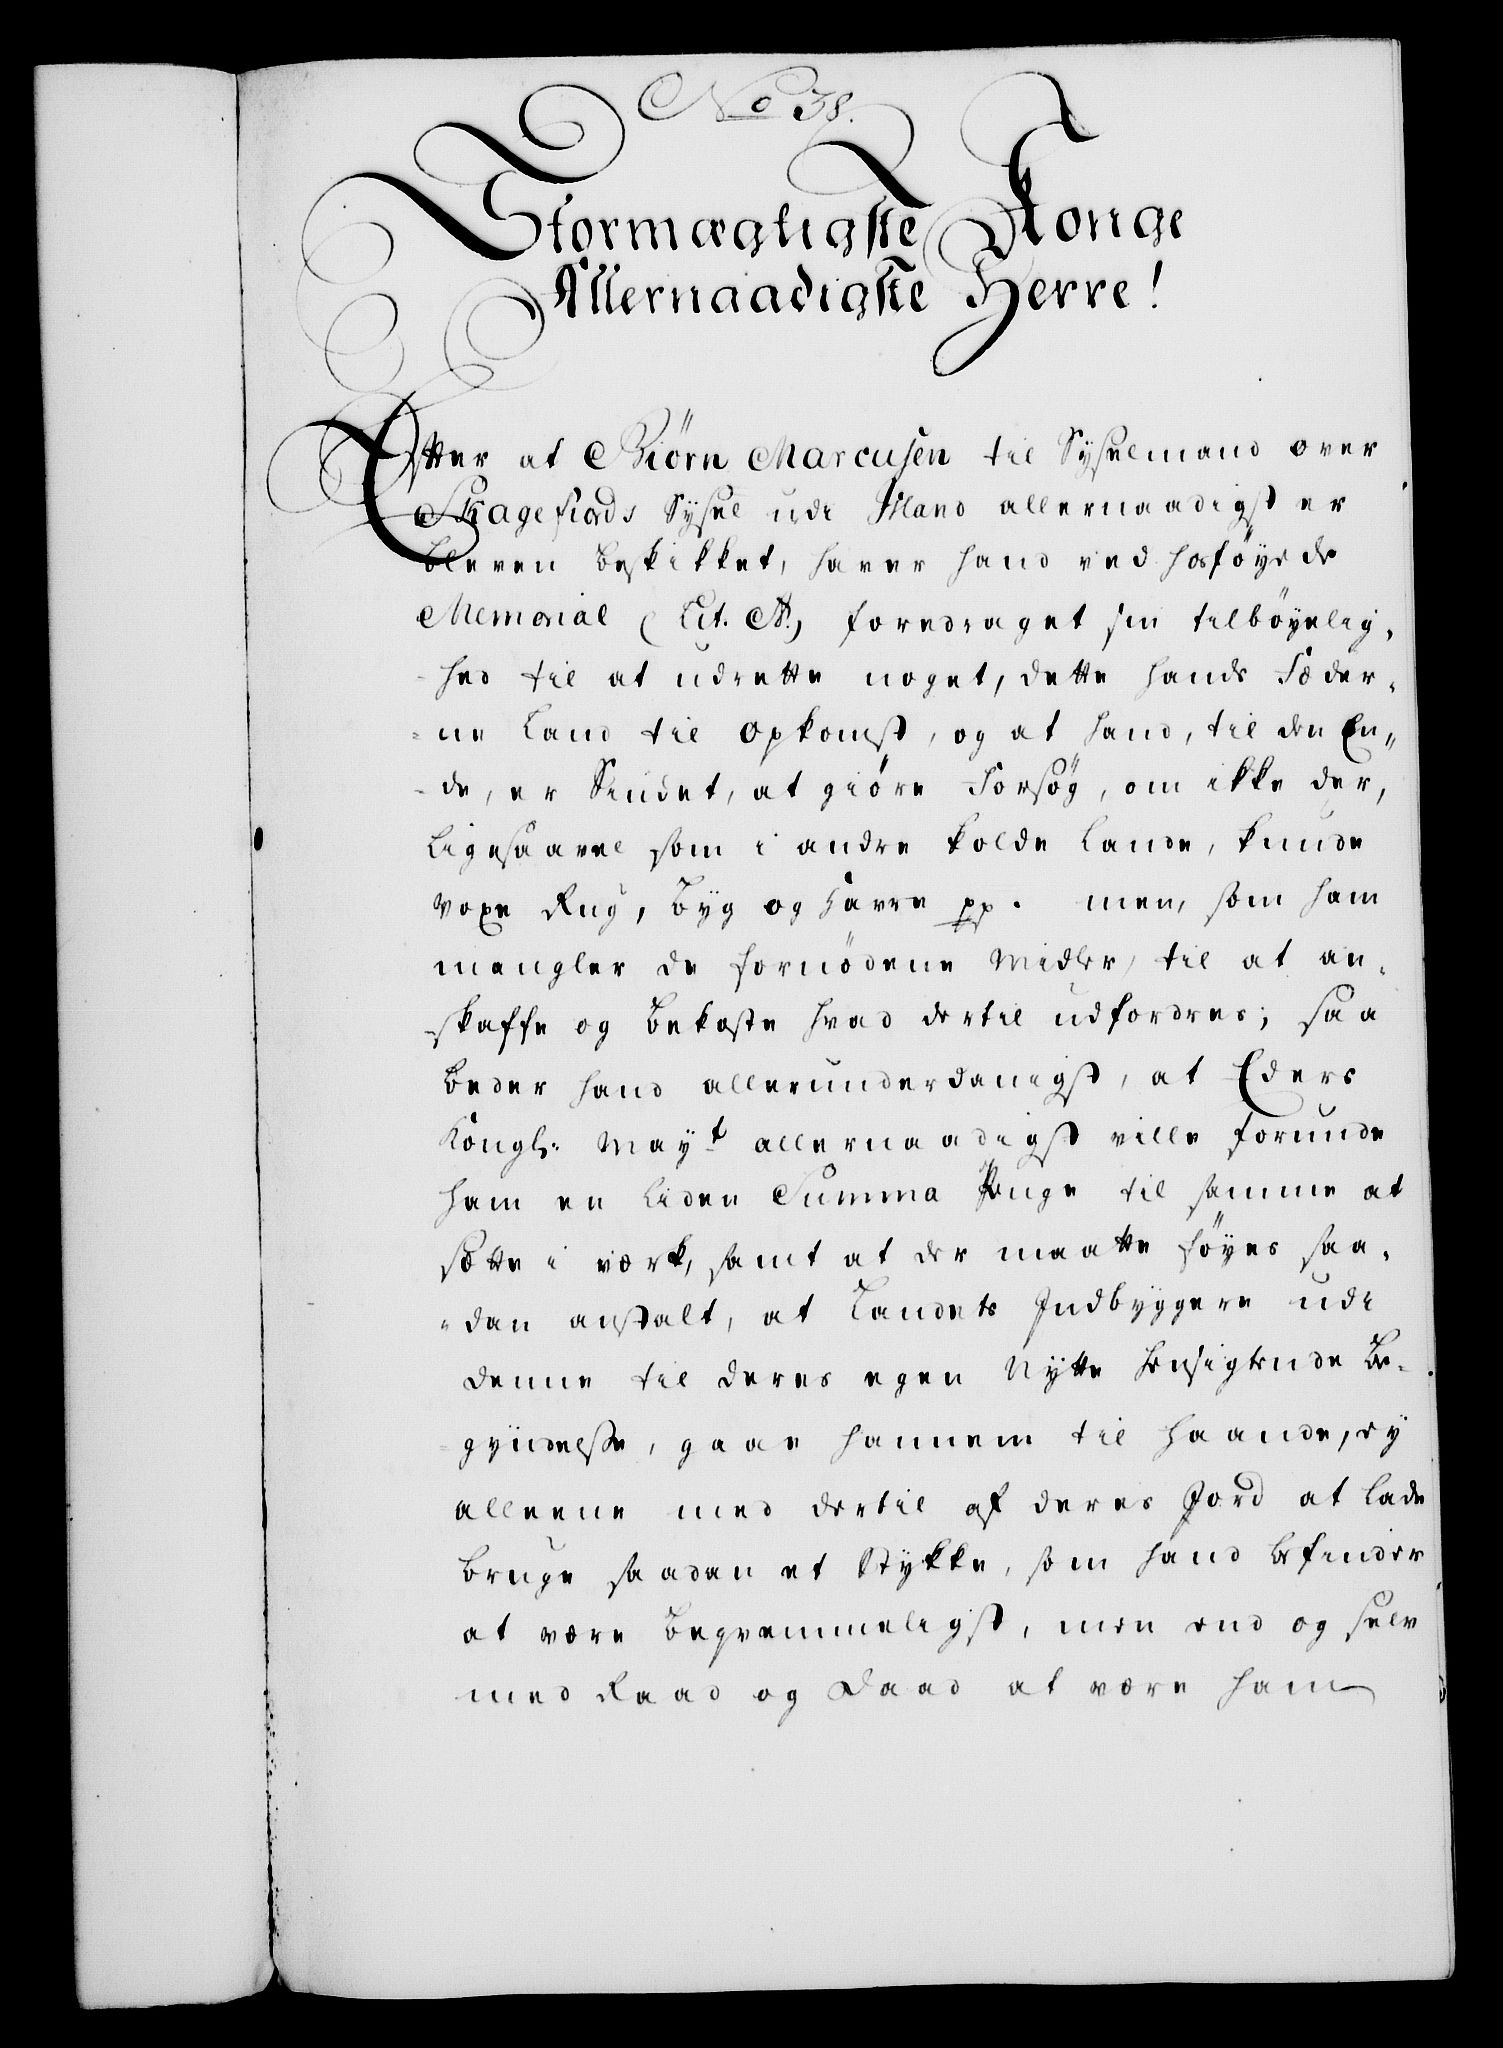 No 38.
Stormægtigste Konge
Allernaadigste Herre!
Efter at Biörn Marcusen til Sÿselmand over
Skagefiords Sÿsel udi Island allernaadigst er
bleven beskikket, haver hand ved hosföyede
Memorial (Lit. A.) foredraget sin tilböyelig-
-hed til at udrette noget, dette hands Fæder-
-ne Land til opkomst, og at hand, til den En-
-de, er Sindet, at giöre Forsög, om ikke der,
ligesaavel som i andre kolde Lande, kunde
voxe Rug, Bÿg og Havre pp. men, som ham
mangler de fornödene Midler, til at an-
-skaffe og bekoste hvad dertil udfordres; saa
beder hand allerunderdanigst, at Eders
Kongl: Mayt allernaadigst ville forunde
ham en liden Summa Penge til samme at
sætte i værk, samt at der maatte föyes saa-
-dan anstalt, at Landets Indbyggere udi
denne til deres egen Nytte hensigtende Be-
-gyndelse, gaae hannem til haande, ey
alleene med dertil af deres Jord at lade
bruge saadan et Stykke, som hand befinder
at være beqvemmeligst, men end og selv
med Raad og Daad at være ham